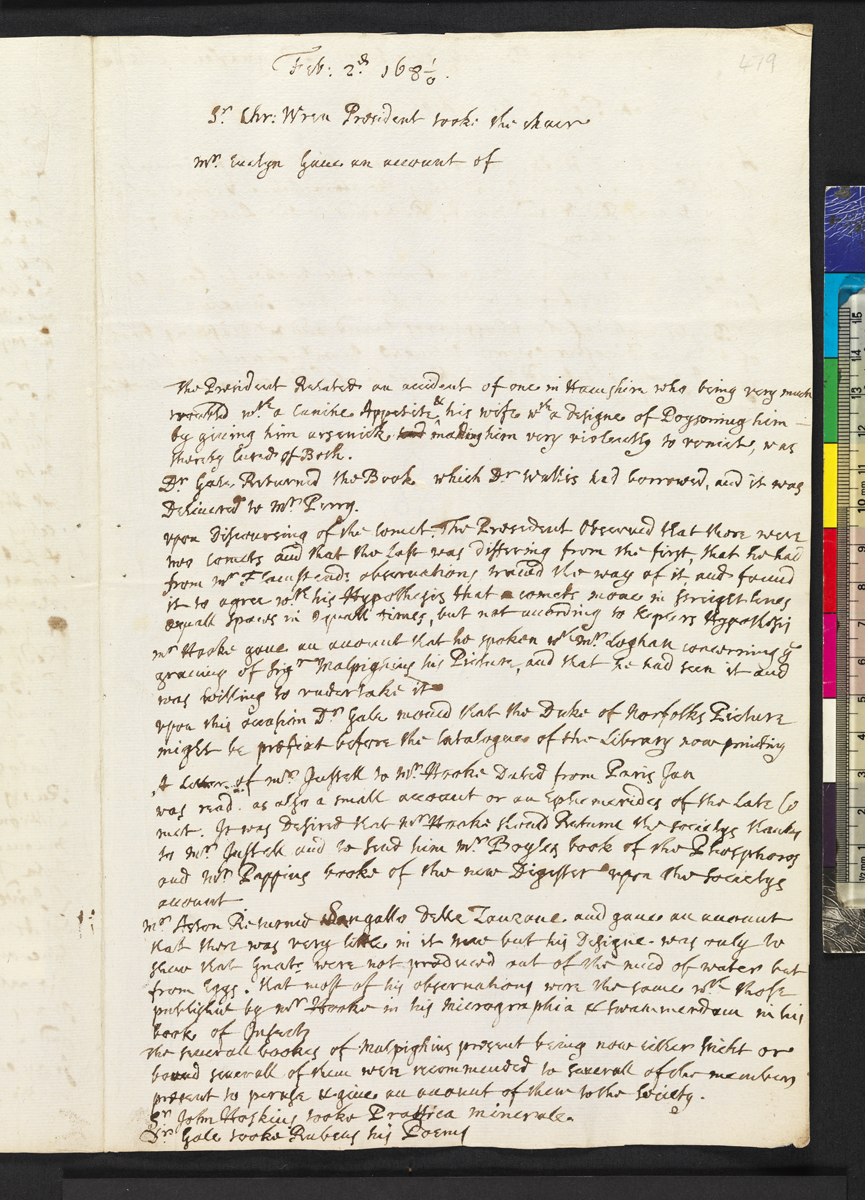 479
Feb: 2d. 168 1/0.
Sr. Chr: Wren President tooke the chair
mr. Evelyn Gave an account of
The President Related an accident of one in Hampshire who being very much
troubled wth a Canine Appetite & his wife wth a designe of Poysoning him
by giving him arsenick making him very violently to vomit, was
thereby Cured of Both.
Dr Gale Returnd the Book which Dr Wallis had borrowed, and it was
Delivered to Mr Perry.
upon Discoursing of the Comet. The President Observed that there were
two Comets and that the Last was differing from the first, that he had
from mr Flamsteads observations traced the way of it and found
it to agree wth his Hypothesis that comets move in streight lines
equall spaces in equall times, but not according to Keplers Hypothesis
mr Hooke gave an account that he spoken wth mr Loghan concerning ye
graving of Sigr Malpighius his Picture, and that he had seen it and
was willing to undertake it
upon this occasion Dr Gale moved that the Duke of Norfolks Picture
might be prefixt before the Catalogue of the Library now printing
A Letter of mr Justell to Mr Hooke Dated from Paris Jan
was read. as also a small account or an Ephemerides of the Late Co
met. It was Desired that Mr Hooke should Returne the societys thanks
to Mr Justell and to send him Mr Boyles book of the Phosphoros
and Mr Pappins booke of the new Digister upon the Societys
account
Mr Aston Returned Sangallo delle Zanzane and gave an account
that there was very little in it new but his Designe was only to
shew that Gnats were not produced out of the mud of water but
from Eggs. that most of his observations were the same wth those
publisht by Mr Hooke in his Micrographia & Swammerdam in his
book of Insects
the severall books of Malpighius present being now either sticht or
bound severall of them were recommended to severall of the members
present to peruse & give an account of them to the Society.
Sr John Hoskins tooke Prattica minerale.
Dr Gale tooke Rubeus his Poems